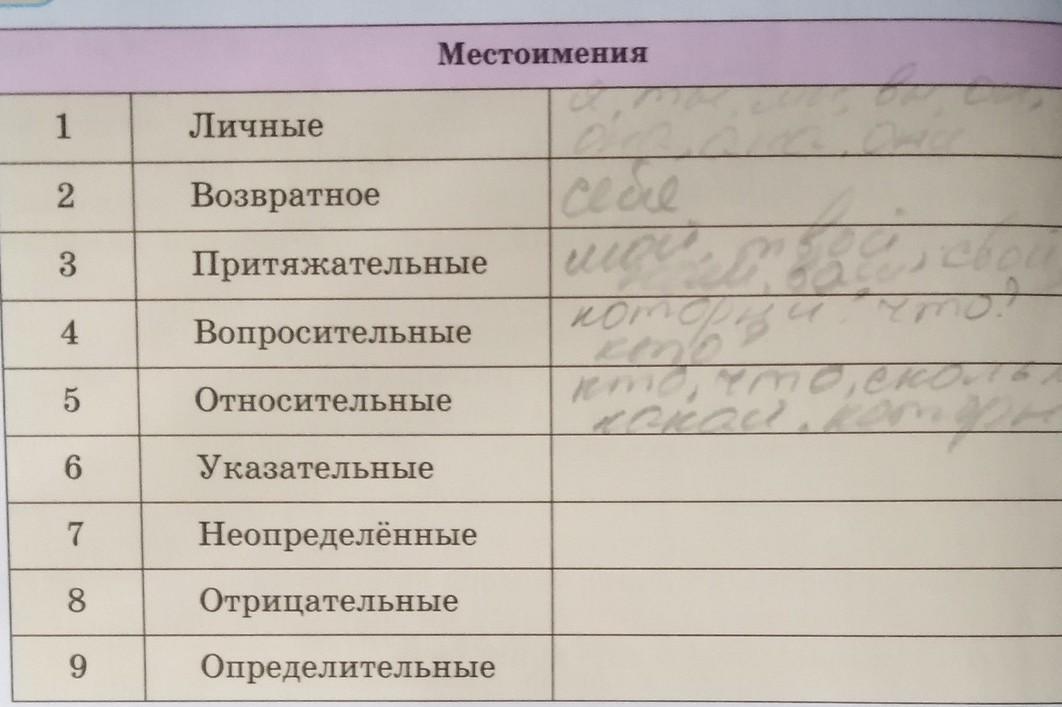 Местоимения
1 Личные я, ты, мы, вы, он,
она, они
2 Возвратное себя
3 Притяжательные мой, твой, свой
наш, ваш,
4 Вопросительные который? что?
кто?
5 Относительные кто, что,
какой,
6 Указательные
7 Неопределённые
8 Отрицательные
9 Определительные